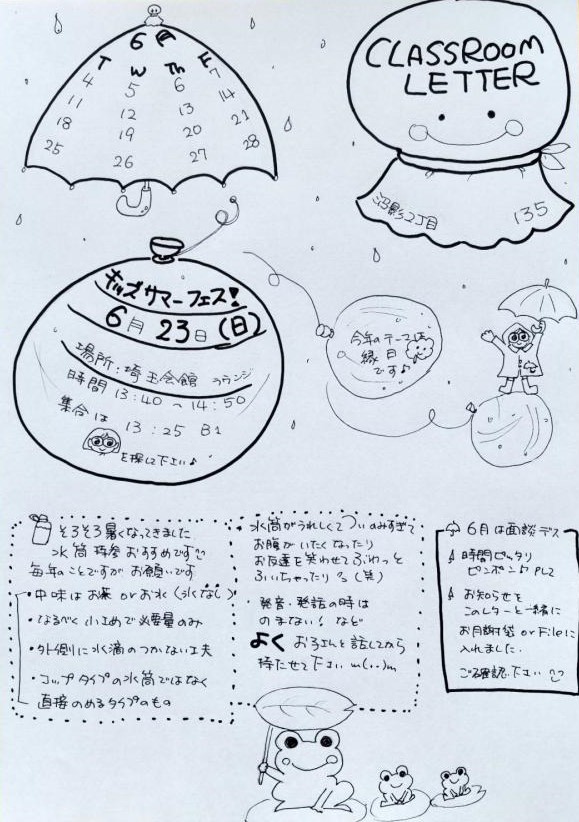 6月
T W Th F
4 5 6 7
11 12 13 14
18 19 20 21
25 26 27 28
CLASSROOM
LETTER
沼影2丁目 135
キッズサマーフェス!
6月 23日(日)
場所:埼玉会館 ラウンジ
時間 13:40 〜 14:50
集合は 13:25 B1
を探して下さい♪
今年のテーマは
縁日
です♪
そろそろ暑くなってきました
水筒持参おすすめです
毎年のことですがお願いです
・中味はお茶 or お水(氷なし)
・なるべく小さめで必要量のみ
・外側に水滴のつかない工夫
・コップタイプの水筒ではなく
直接のめるタイプのもの
・水筒がうれしくてついのみすぎて
お腹がいたくなったり
お友達を笑わせてぷわっと
ふいちゃったり (笑)
・発音・発話の時は
のまない! など
よく お子さんと話してから
持たせて下さい m(..)m
6月は面談デス
時間ピッタリ
ピンポン♪ PLZ
お知らせを
このレターと一緒に
お月謝袋 or Fileに
入れました.
ご確認下さい